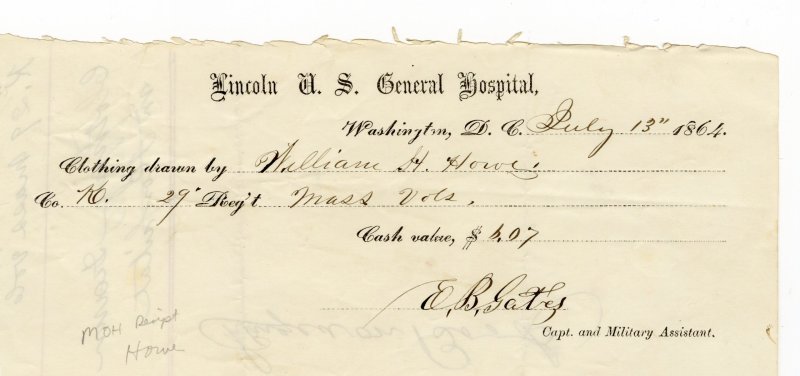 Lincoln U. S. General Hospital,
Washington, D. C. July 13" 1864.
Clothing drawn by William H. Howe.
Co. K. 29" Reg't Mass Vols.
Cash value, $
E. B. Gates
Capt. and Military Assistant.
MOH Receipt
Howe